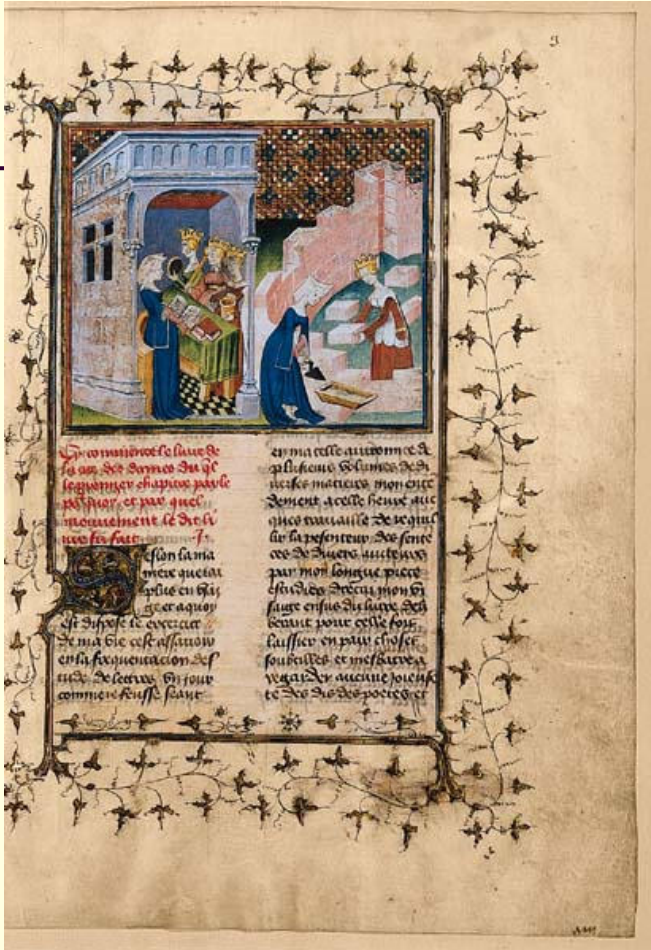 Cy commence le livre de
la cite des dames du ql
le premier chapitre parle
pour quoy et par quel
mouvement le dit li
vre fu fait. I.
Selon la ma
niere que iai
plus en usai
ge et a quoy
est dispose le excercite
de ma vie cest assavoir
en la frequentacion des
tude de lettres un jour
comme je feusse seant
en ma celle avironnee de
plusieurs volumes de di
verses matieres mon ente
dement a celle heure auc
ques travaille de recueil
lir la pesenteur des sente
ces de divers aucteurs
par moy longue piece
estudies drecay mon vi
sage ensus du livre deli
berant pour celle fois
laissier en paix choses
soubtilles et mesbatre a
regarder aucune joieuse
te des dis des poetes et